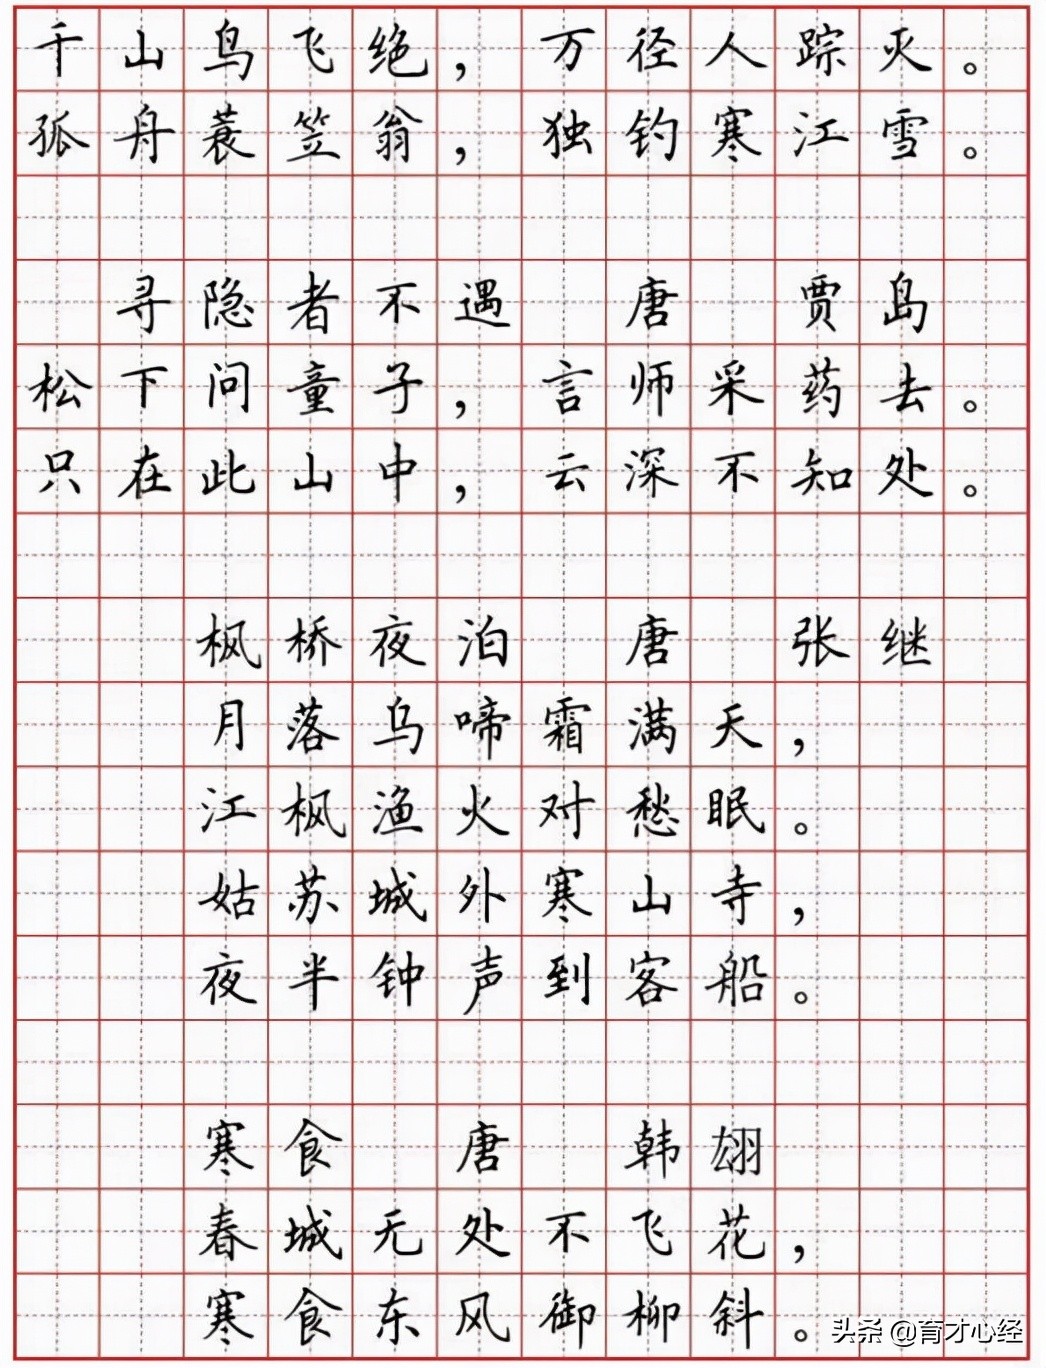 千山鸟飞绝，万径人踪灭。
孤舟蓑笠翁，独钓寒江雪。
寻隐者不遇 唐 贾岛
松下问童子，言师采药去。
只在此山中，云深不知处。
枫桥夜泊 唐 张继
月落乌啼霜满天，
江枫渔火对愁眠。
姑苏城外寒山寺，
夜半钟声到客船。
寒食 唐 韩翃
春城无处不飞花，
寒食东风御柳斜。
头条 @育才心经